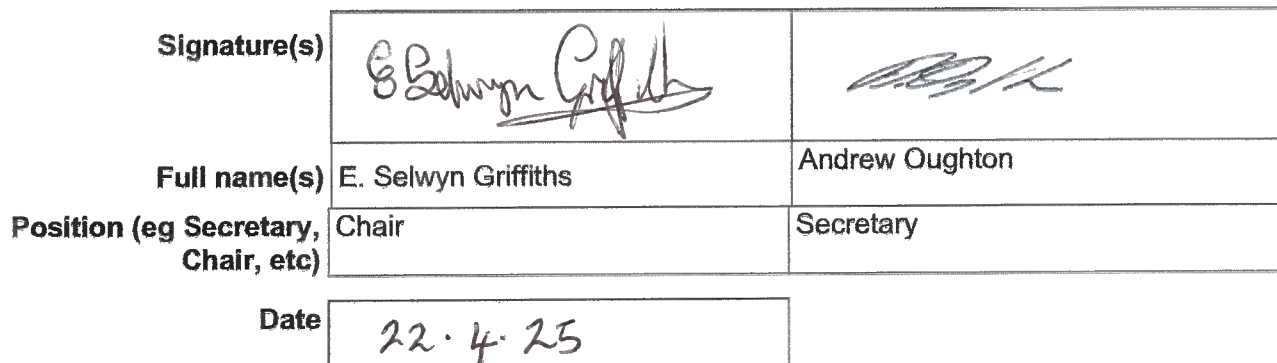 Signature(s)
E Selwyn Griffiths
Full name(s) E. Selwyn Griffiths Andrew Oughton
Position (eg Secretary, Chair Secretary
Chair, etc)
Date 22.4.25